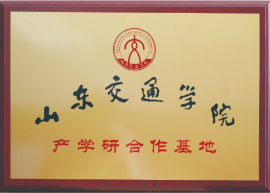 山东交通学院
产学研合作基地